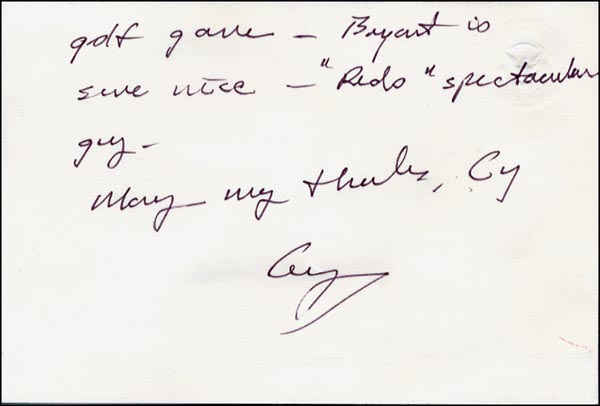 golf game – Bryant is
sure nice – spectacular
guy –
Many my thanks, Cy